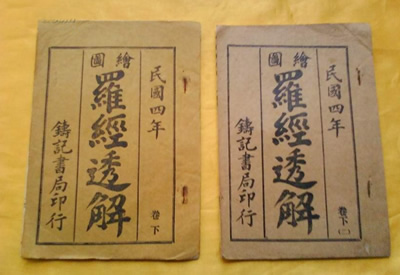 民國四年
繪圖
羅經透解
卷下
鑄記書局印行
民國四年
繪圖
羅經透解
卷下(二)
鑄記書局印行